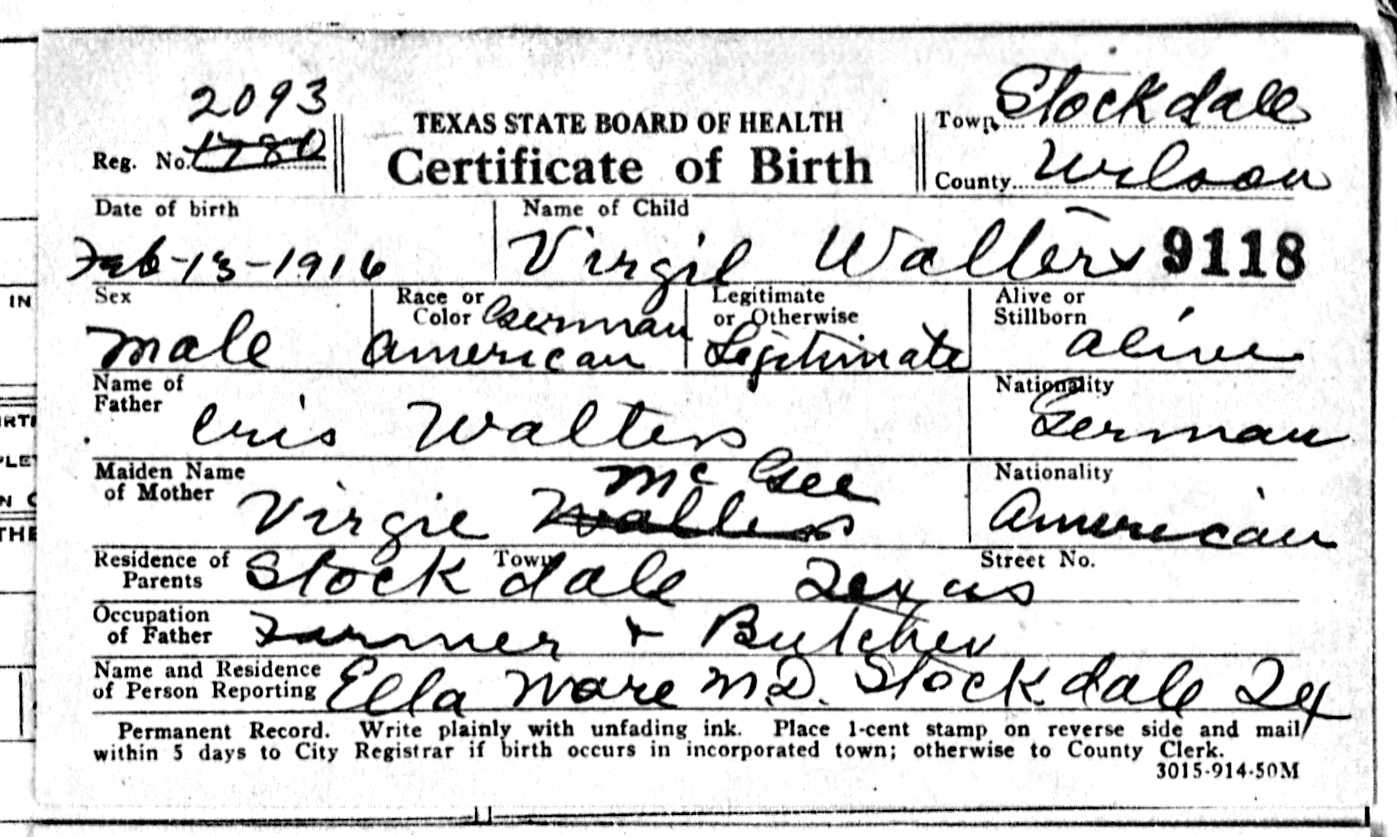 2093
Reg. No. 1780
TEXAS STATE BOARD OF HEALTH
Certificate of Birth
Town Stockdale
County Wilson
Date of birth
Feb-13-1916
Name of Child
Virgil Walters 9118
Sex
male
Race or Color German
American
Legitimate or Otherwise
Legitimate
Alive or Stillborn
alive
Name of Father Cris Walters
Nationality
German
Maiden Name of Mother Virgie Walters McGee
Nationality
American
Residence of Parents Stockdale Texas
Town
Street No.
Occupation of Father Farmer + Butcher
Name and Residence of Person Reporting Ella Ware M.D. Stockdale Tex
Permanent Record. Write plainly with unfading ink. Place 1-cent stamp on reverse side and mail
within 5 days to City Registrar if birth occurs in incorporated town; otherwise to County Clerk.
3015-914-50M
IN
THE